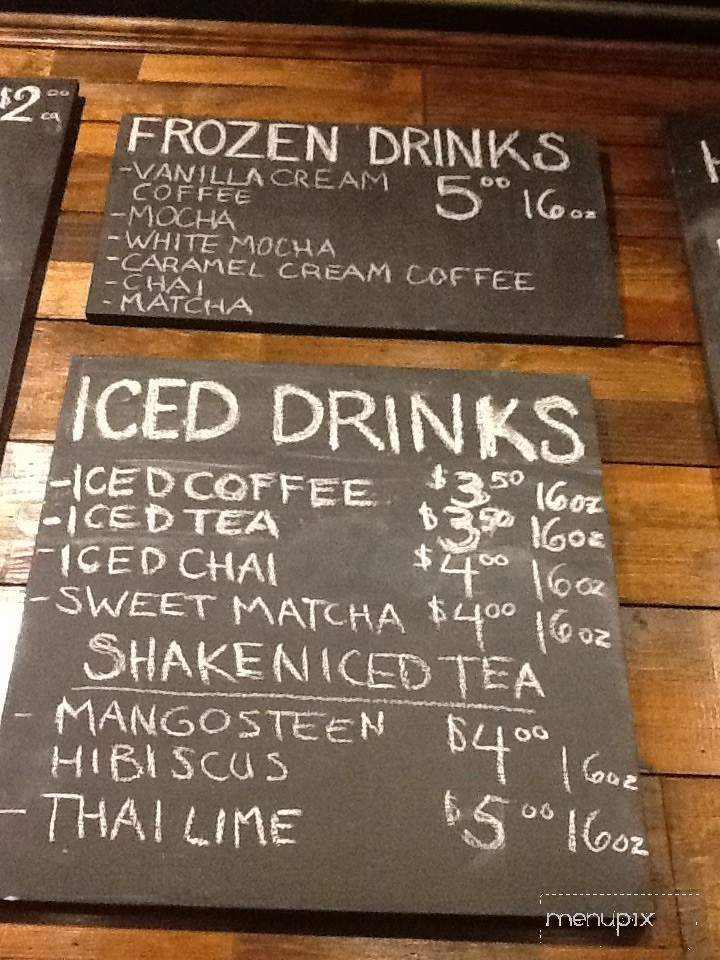 $2.00
ea
FROZEN DRINKS
-VANILLA CREAM
COFFEE
5.00 16oz
-MOCHA
-WHITE MOCHA
-CARAMEL CREAM COFFEE
-CHAI
-MATCHA
ICED DRINKS
-ICED COFFEE $3.50 16oz
-ICED TEA $3.50 16oz
-ICED CHAI $4.00 16oz
-SWEET MATCHA $4.00 16oz
SHAKEN ICED TEA
- MANGOSTEEN $4.00
HIBISCUS 16oz
- THAI LIME $5.00 16oz
menupix